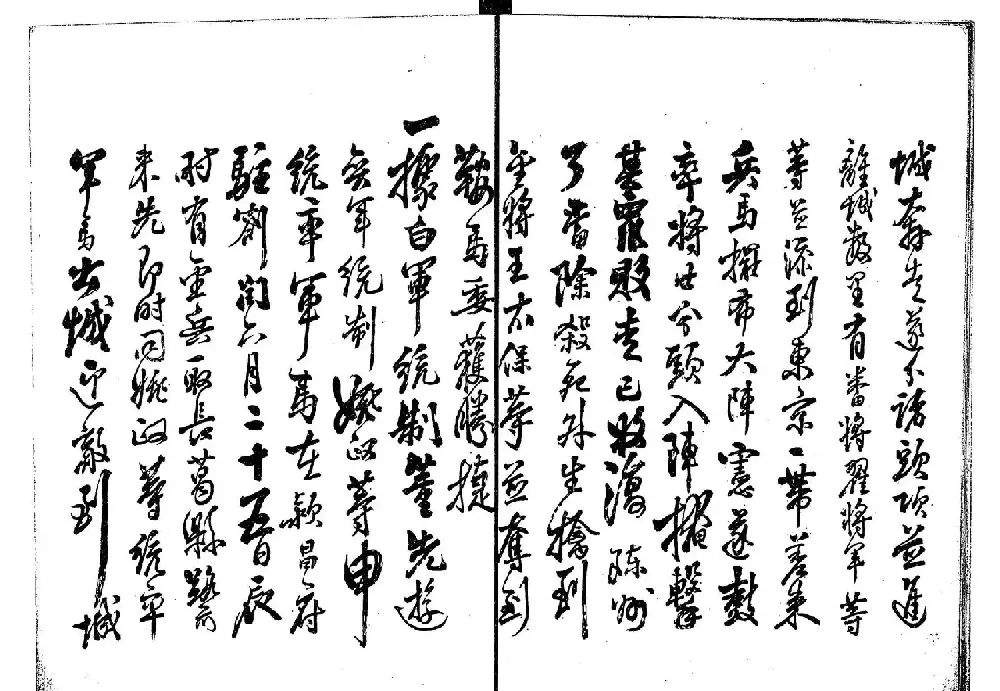 城奔走遂分諸頭項並進
離城數里有番將翟將軍等
等並添到東京一帶差來
兵馬擺布大陣憲遂鼓
率將士分頭入陣掩擊
其寇敗走已收復陳州
了當除殺死外生擒到
金將王太保等並奪到
鞍馬委獲勝捷
一據白軍統制董先遊
奕軍統制姚政等申
統率軍馬在潁昌府
駐劄閏六月二十五日辰
時有金兵取長葛縣路前
來先即時同姚政等統率
軍馬出城迎敵到城